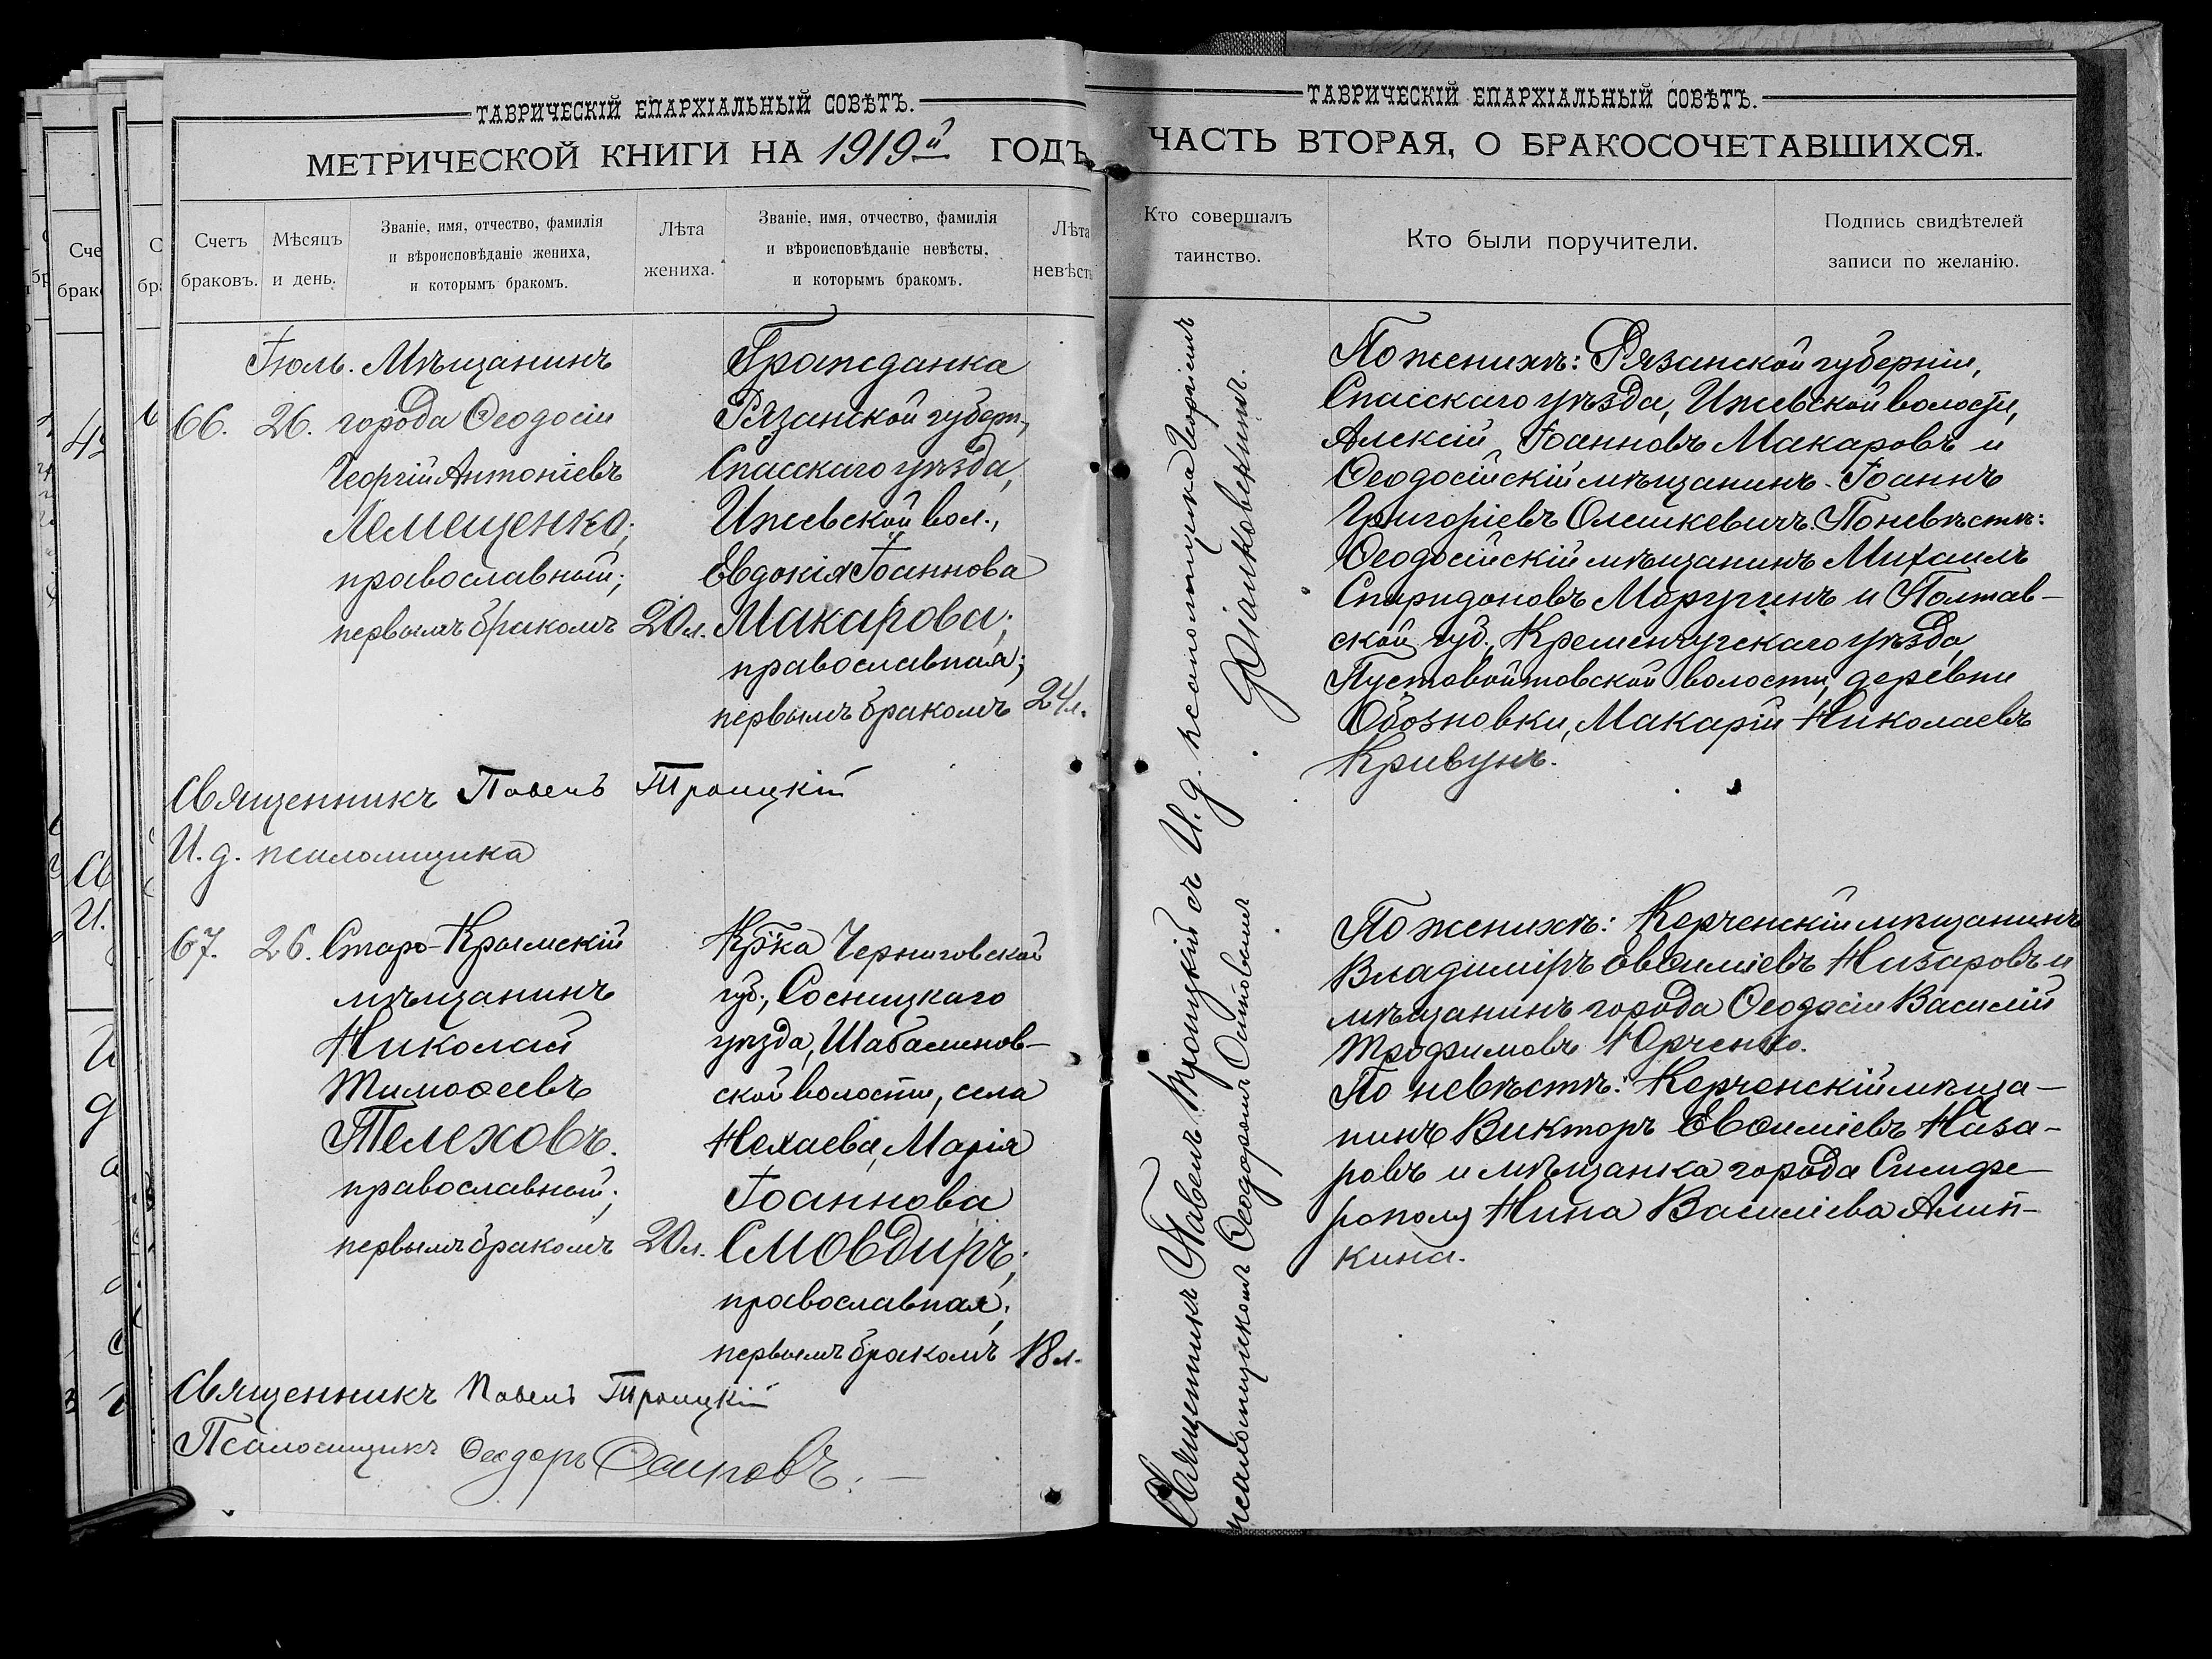 ТАВРИЧЕСКІЙ ЕПАРХІАЛЬНЫЙ СОВѢТЪ.
МЕТРИЧЕСКОЙ КНИГИ НА 1919й ГОДЪ
Счетъ браковъ.
Мѣсяцъ и день.
Званіе, имя, отчество, фамилія
и вѣроисповѣданіе жениха,
и которымъ бракомъ.
Лѣта
жениха.
Званіе, имя, отчество, фамилія
и вѣроисповѣданіе невѣсты,
и которымъ бракомъ.
Лѣта
невѣсты
66.
Іюль.
26.
Мѣщанинъ
города Ѳеодосіи
Георгій Антоніевъ
Лемещенко,
православный;
первымъ бракомъ
20 л.
Гражданка
Рязанской губерн.,
Спасскаго уѣзда,
Ижевской вол.,
Евдокія Іоаннова
Макарова;
православная;
первымъ бракомъ
24 л.
Священникъ Павелъ Троицкій
И. д. псаломщика
67.
26.
Старо-Крымскій
мѣщанинъ
Николай
Тимоѳеевъ
Телеховъ.
православный;
первымъ бракомъ
20 л.
Кр-ка Черниговской
губ., Сосницкаго
уѣзда, Шабалинов-
ской волости, села
Нехаева, Марія
Іоаннова
Смовдырь;
православная;
первымъ бракомъ
18 л.
Священникъ Павелъ Троицкій
Псаломщикъ Ѳеодоръ Осиповъ.
ТАВРИЧЕСКІЙ ЕПАРХІАЛЬНЫЙ СОВѢТЪ.
ЧАСТЬ ВТОРАЯ, О БРАКОСОЧЕТАВШИХСЯ.
Кто совершалъ
таинство.
Кто были поручители.
Подпись свидѣтелей
записи по желанію.
Священникъ Павелъ Троицкій съ И. д. псаломщика Георгіемъ
псаломщикомъ Ѳеодоромъ Осиповымъ
По женихѣ: Рязанской губерніи,
Спасскаго уѣзда, Ижевской волости,
Алексій Іоанновъ Макаровъ и
Ѳеодосійскій мѣщанинъ Іоаннъ
Григоріевъ Олешкевичъ. По невѣстѣ:
Ѳеодосійскій мѣщанинъ Михаилъ
Спиридоновъ Моргунъ и Полтав-
ской губ., Кременчугскаго уѣзда,
Пустовойтовской волости, деревни
Обозновки, Макарій Николаевъ
Кривунъ.
По женихѣ: Керченскій мѣщанинъ
Владиміръ Евѳиміевъ Назаровъ и
мѣщанинъ города Ѳеодосіи Василій
Трофимовъ Юрченко.
По невѣстѣ: Керченскій мѣща-
нинъ Викторъ Евѳиміевъ Наза-
ровъ и мѣщанка города Симфе-
рополя Нина Василіева Алип-
кина.